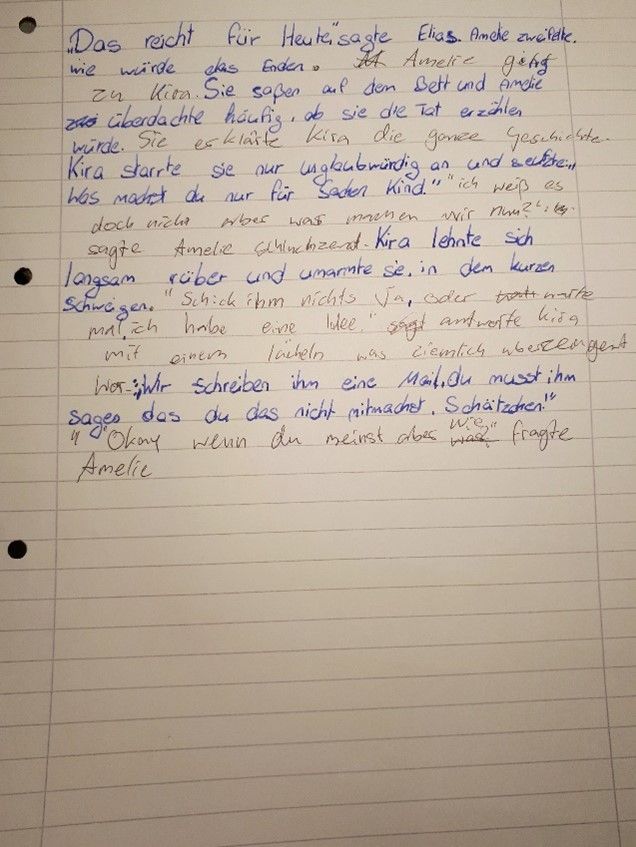 „Das reicht für Heute" sagte Elias. Amelie zweifelte.
wie würde das Enden. Amelie ging
zu Kira. Sie saßen auf dem Bett und Amelie
überdachte häufig, ob sie die Tat erzählen
würde. Sie erklärte Kira die ganze Geschichte.
Kira starrte sie nur unglaubwürdig an und seufzte:„
Was machst du nur für Sachen Kind." "ich weiß es
doch nicht aber was machen wir nun?"
sagte Amelie schluchzend. Kira lehnte sich
langsam rüber und umarmte sie, in dem kurzen
Schweigen. "Schick ihm nichts Ja, oder warte
mal, ich habe eine Idee." antworte Kira
mit einem lächeln was ziemlich überzeugent
war. :„Wir schreiben ihm eine Mail, du musst ihm
sagen das du das nicht mitmachst, Schätzchen!"
" Okay wenn du meinst aber wie?" fragte
Amelie